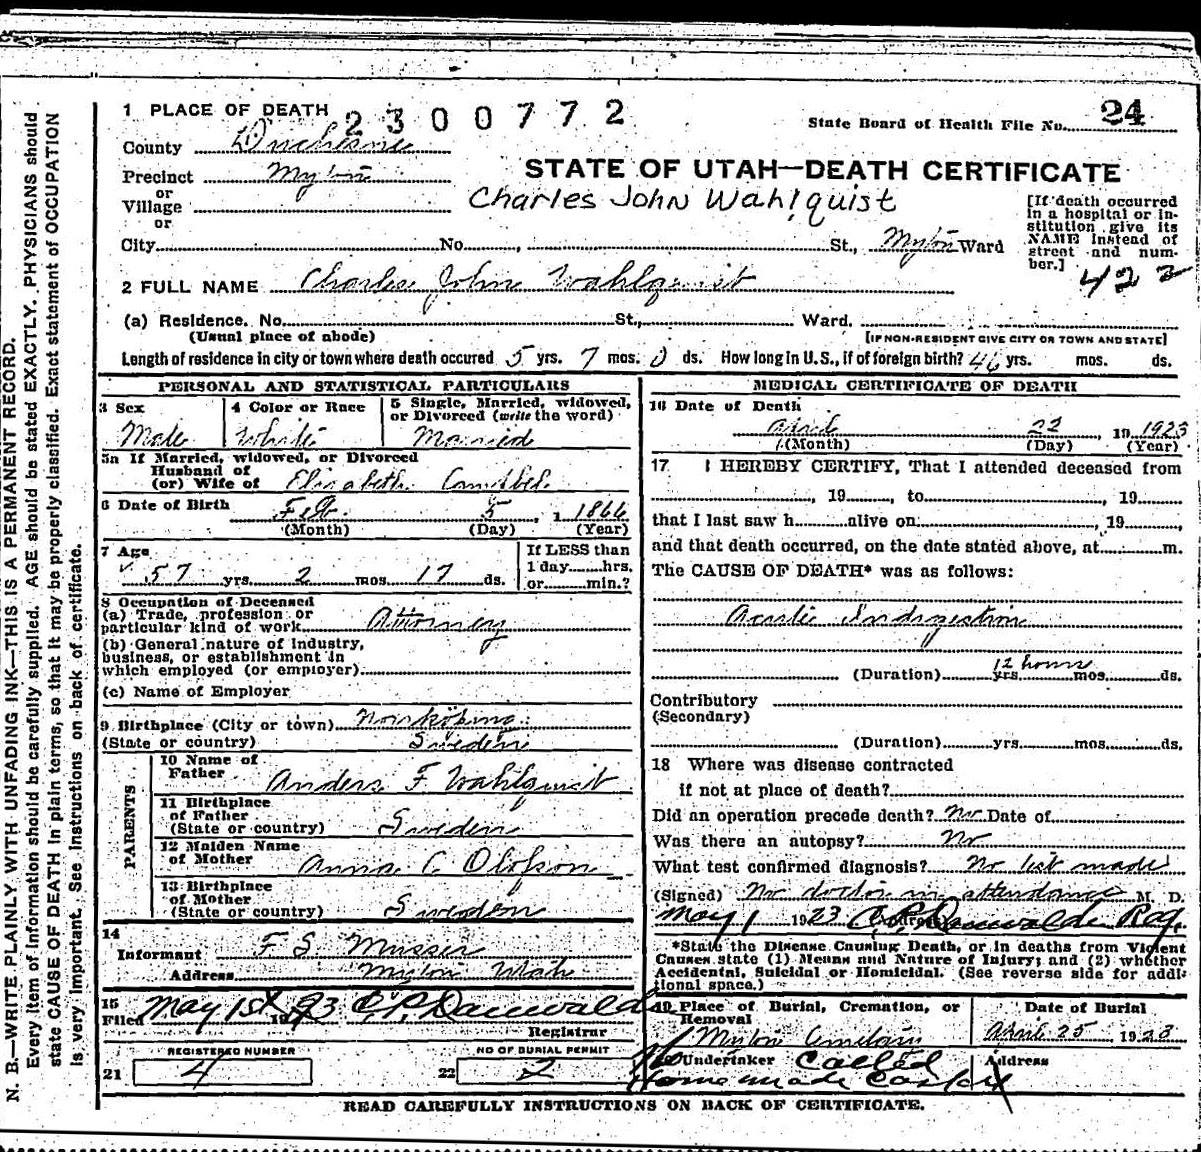 1 PLACE OF DEATH
2300772
State Board of Health File No. 24
County Duchesne
STATE OF UTAH—DEATH CERTIFICATE
Precinct Myton
Charles John Wahlquist
or
Village
or
[If death occurred
in a hospital or in-
stitution give its
NAME instead of
street and num-
ber.]
422
City No. , St., Myton Ward
2 FULL NAME Charles John Wahlquist
(a) Residence. No. St., Ward.
(Usual place of abode)
[IF NON-RESIDENT GIVE CITY OR TOWN AND STATE]
Length of residence in city or town where death occured 5 yrs. 7 mos. 0 ds. How long in U.S., if of foreign birth? 46 yrs. mos. ds.
PERSONAL AND STATISTICAL PARTICULARS
3 Sex
Male
4 Color or Race
White
5 Single, Married, widowed,
or Divorced (write the word)
Married
5a If Married, widowed, or Divorced
Husband of
(or) Wife of Elizabeth
6 Date of Birth
Feb. 5, 1866
(Month) (Day) (Year)
7 Age
57 yrs. 2 mos. 17 ds.
If LESS than
1 day hrs.
or min.?
8 Occupation of Deceased
(a) Trade, profession or
particular kind of work Attorney
(b) General nature of industry,
business, or establishment in
which employed (or employer)
(c) Name of Employer
9 Birthplace (City or town)
(State or country) Sweden
PARENTS
10 Name of
Father Anders F Wahlquist
11 Birthplace
of Father
(State or country) Sweden
12 Maiden Name
of Mother Anna C. Olofson
13 Birthplace
of Mother
(State or country) Sweden
14
Informant F S Musser
Address Myton Utah
15
Filed May 1st 1923
Registrar
REGISTERED NUMBER
21 4
NO OF BURIAL PERMIT
22 2
MEDICAL CERTIFICATE OF DEATH
16 Date of Death
April 22 1923
(Month) (Day) (Year)
17 I HEREBY CERTIFY, That I attended deceased from
, 19 , to , 19
that I last saw h alive on , 19 ,
and that death occurred, on the date stated above, at m.
The CAUSE OF DEATH* was as follows:
Acute Indigestion
12 hours
(Duration) yrs. mos. ds.
Contributory
(Secondary)
(Duration) yrs. mos. ds.
18 Where was disease contracted
if not at place of death?
Did an operation precede death? No Date of
Was there an autopsy? No
What test confirmed diagnosis? No test made
(Signed) No doctor in attendance M. D.
May 1 1923 Reg.
*State the Disease Causing Death, or in deaths from Violent
Causes state (1) Means and Nature of Injury; and (2) whether
Accidental, Suicidal or Homicidal. (See reverse side for addi-
tional space.)
19 Place of Burial, Cremation, or
Removal
Myton
Date of Burial
April 25 1923
No Undertaker Called
Home made Casket
Address
READ CAREFULLY INSTRUCTIONS ON BACK OF CERTIFICATE.
N. B.—WRITE PLAINLY WITH UNFADING INK—THIS IS A PERMANENT RECORD.
Every item of information should be carefully supplied. AGE should be stated EXACTLY. PHYSICIANS should
state CAUSE OF DEATH in plain terms, so that it may be properly classified. Exact statement of OCCUPATION
is very important. See instructions on back of certificate.